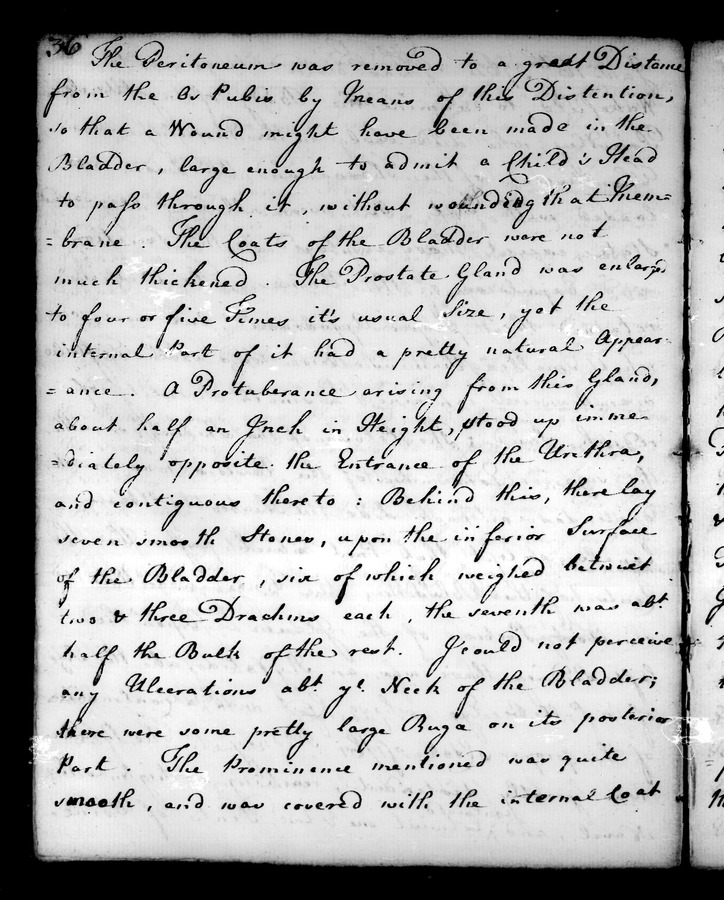 36
The Peritoneum was removed to a great Distance
from the Os Pubis by Means of this Distention,
so that a Wound might have been made in the
Bladder, large enough to admit a Child's Head
to pass through it, without woundedg that Mem=
=brane. The Coats of the Bladder were not
much thickened. The Prostate Gland was enlarg'd
to four or five Times it's usual Size, yet the
internal Part of it had a pretty natural Appear-
=ance. A Protuberance arising from this Gland,
about half an Inch in Height, stood up imme
=diately opposite the Entrance of the Urethra,
and contiguous thereto: Behind this, there lay
seven smooth Stones, upon the inferior Surface
of the Bladder, six of which weighed betwixt
two & three Drachms each, the seventh was abt.
half the Bulk of the rest. I could not perceive
any Ulcerations abt. ye. Neck of the Bladder;
there were some pretty large Ruga on its posterior
Part. The Prominence mentioned was quite
smooth, and was covered with the internal Coat